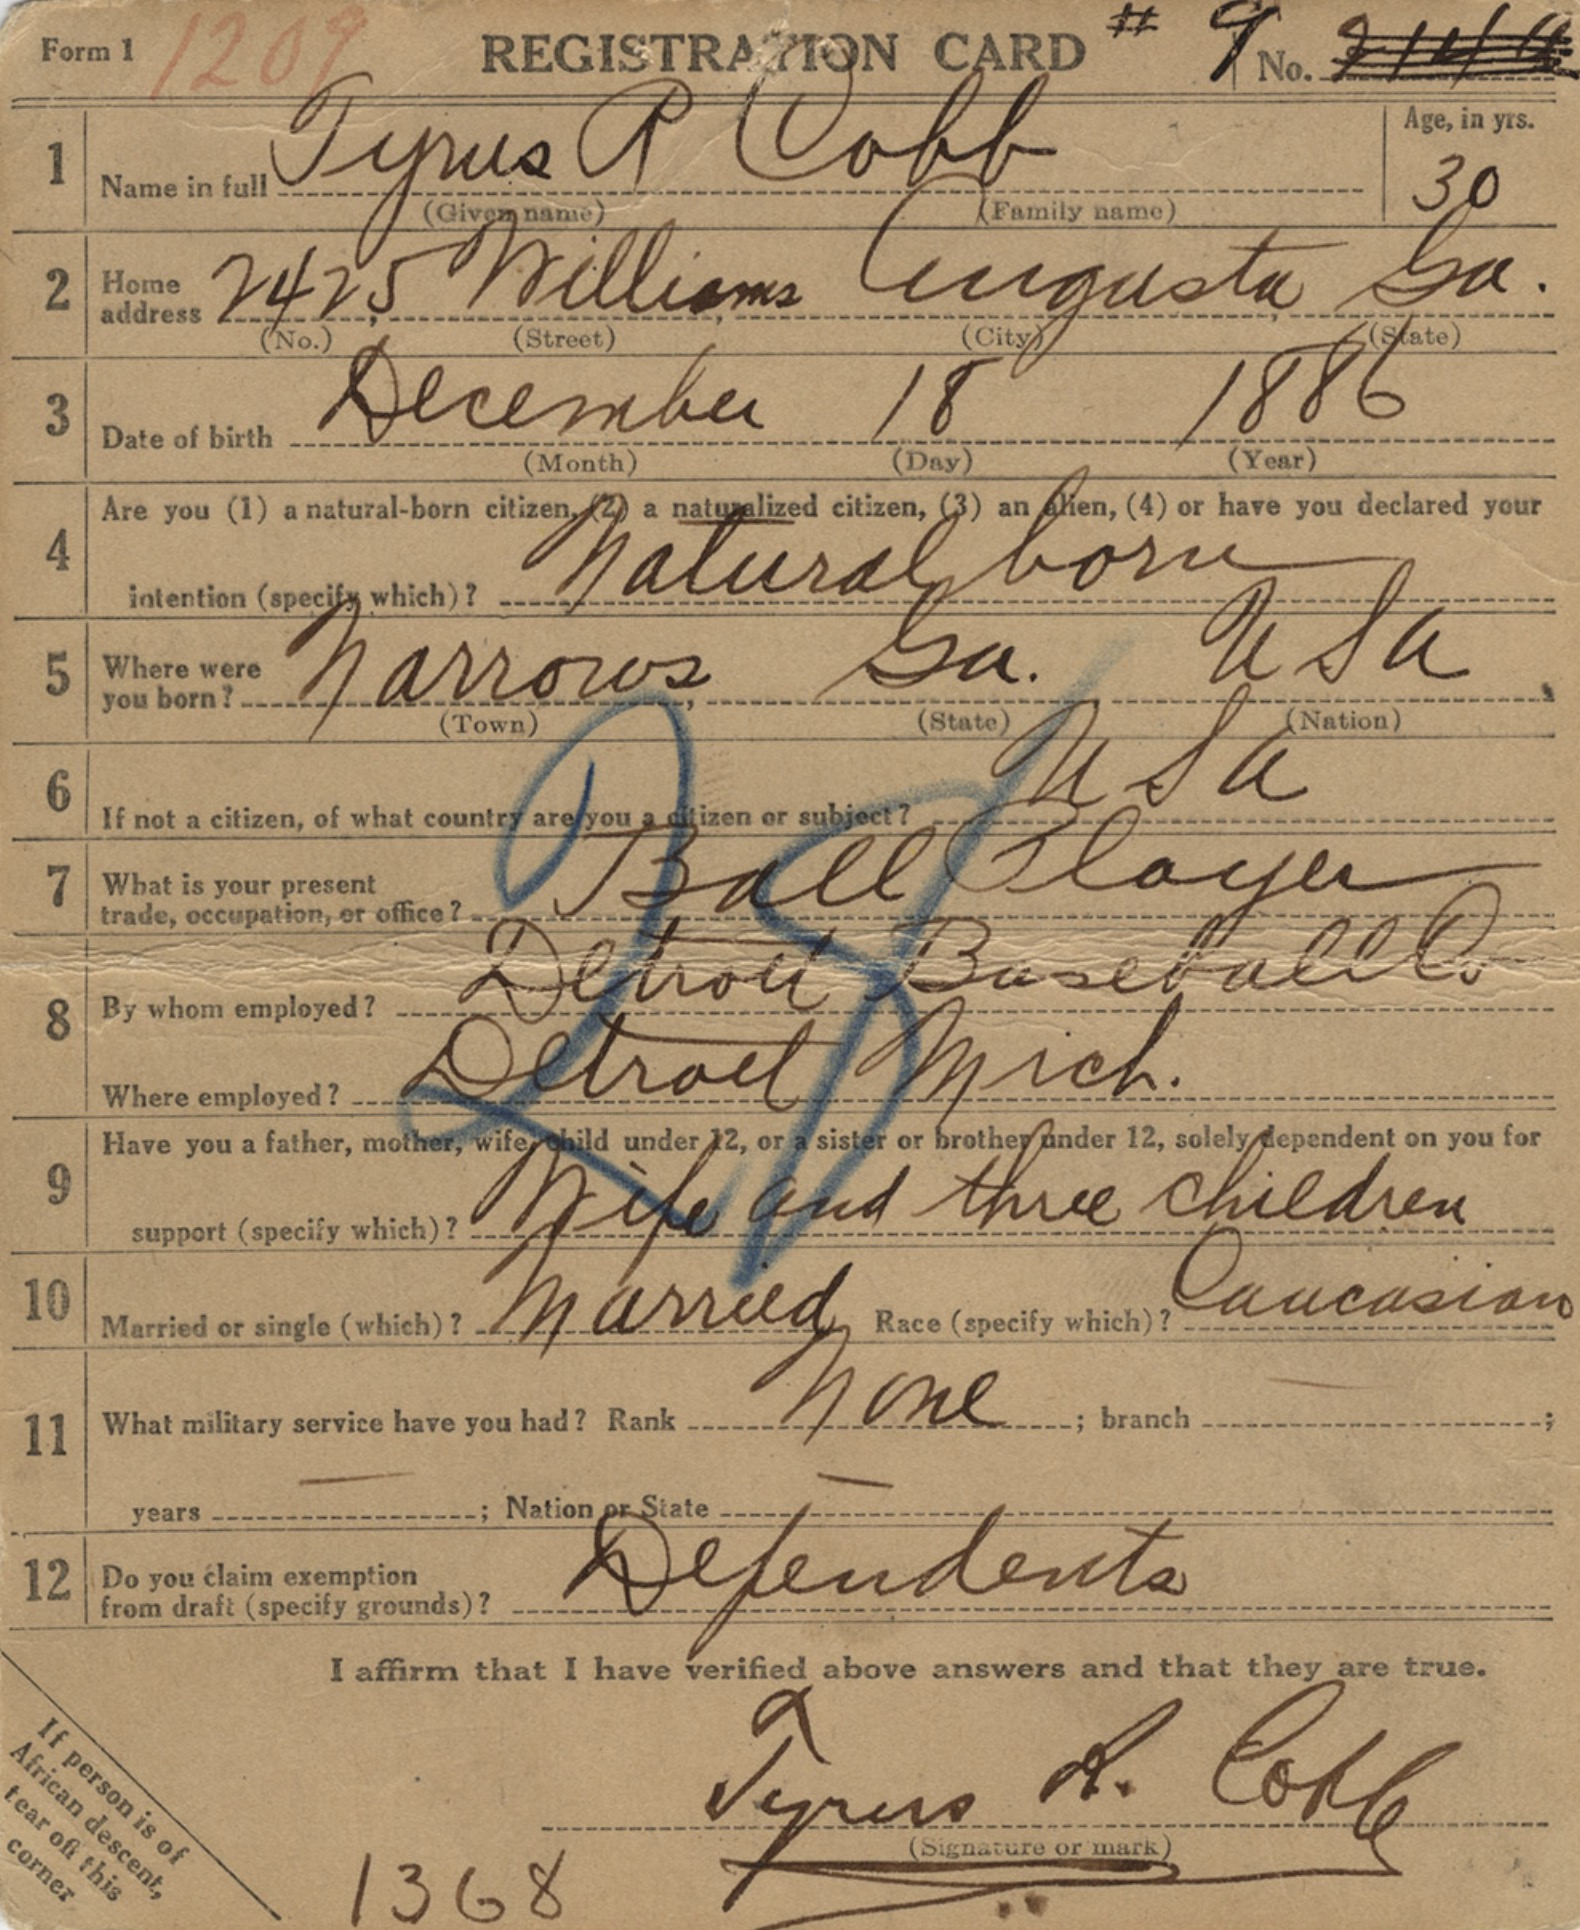 Form 1 1209 REGISTRATION CARD # 9 No.
1 Name in full Tyrus R Cobb Age, in yrs. 30
(Given name) (Family name)
2 Home address 2425 Williams Augusta, Ga.
(No.) (Street) (City) (State)
3 Date of birth December 18 1886
(Month) (Day) (Year)
4 Are you (1) a natural-born citizen, (2) a naturalized citizen, (3) an alien, (4) or have you declared your
intention (specify which)? Natural born
5 Where were you born? Narrows, Ga. USA
(Town) (State) (Nation)
6 If not a citizen, of what country are you a citizen or subject? USA
7 What is your present trade, occupation, or office? Ball Player
8 By whom employed? Detroit Baseball Co
Where employed? Detroit Mich.
9 Have you a father, mother, wife, child under 12, or a sister or brother under 12, solely dependent on you for
support (specify which)? Wife and three children
10 Married or single (which)? Married Race (specify which)? Caucasian
11 What military service have you had? Rank None ; branch ;
years ; Nation or State
12 Do you claim exemption from draft (specify grounds)? Dependents
I affirm that I have verified above answers and that they are true.
Tyrus R. Cobb
(Signature or mark)
If person is of
African descent,
tear off this
corner
1368